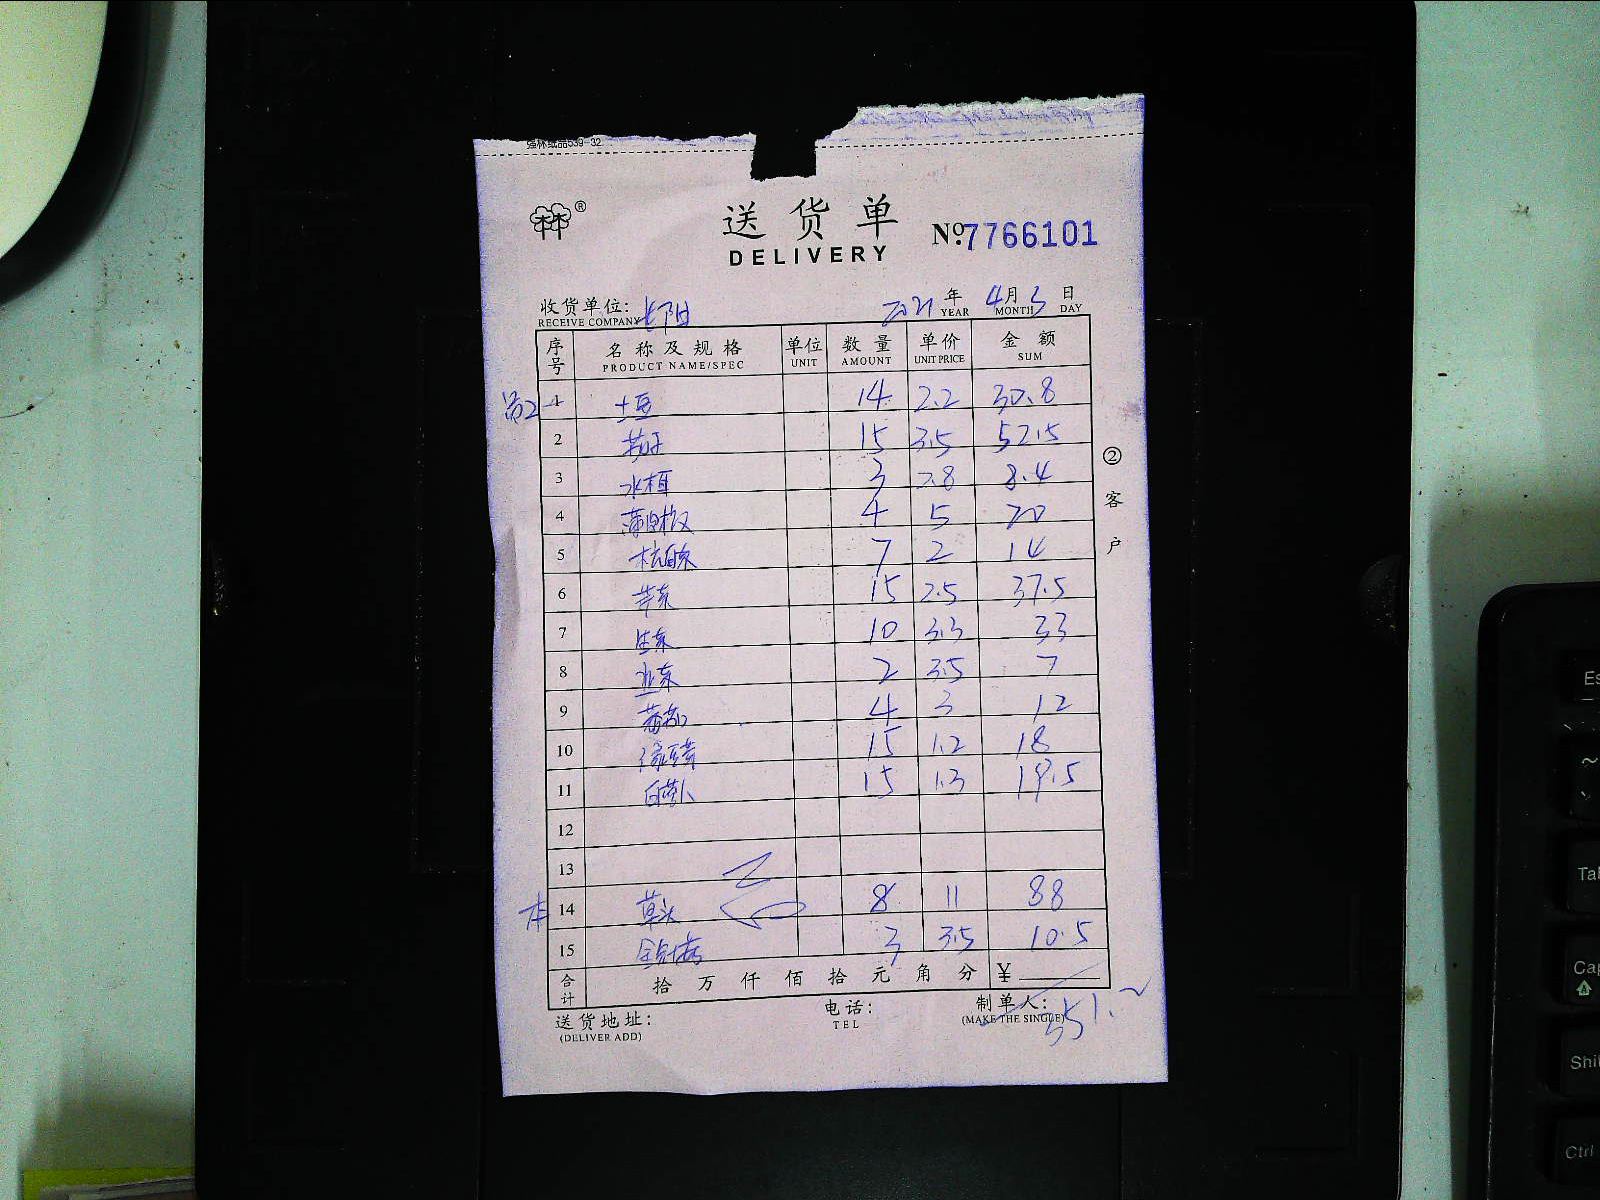 强林纸品539-32
®
送货单
DELIVERY
Nº:7766101
收货单位: 长阳
RECEIVE COMPANY
2021 年 4 月 3 日
YEAR MONTH DAY
序号 名称及规格 单位 数量 单价 金额
PRODUCT NAME/SPEC UNIT AMOUNT UNIT PRICE SUM
1 土豆 14 2.2 30.8
2 茄子 15 3.5 52.5
3 3 2.8 8.4
4 4 5 20
5 杭白菜 7 2 14
6 芹菜 15 2.5 37.5
7 生菜 10 3.3 33
8 韭菜 2 3.5 7
9 蕃茄 4 3 12
10 绿豆芽 15 1.2 18
11 白萝卜 15 1.3 19.5
12
13
14 草头 8 11 88
15 3 3.5 10.5
合计 拾 万 仟 佰 拾 元 角 分 ¥
351.~
送货地址:
(DELIVER ADD)
电话:
TEL
制单人:
(MAKE THE SINGLE)
②客户
Es
~
Tab
Cap
Shi
Ctrl